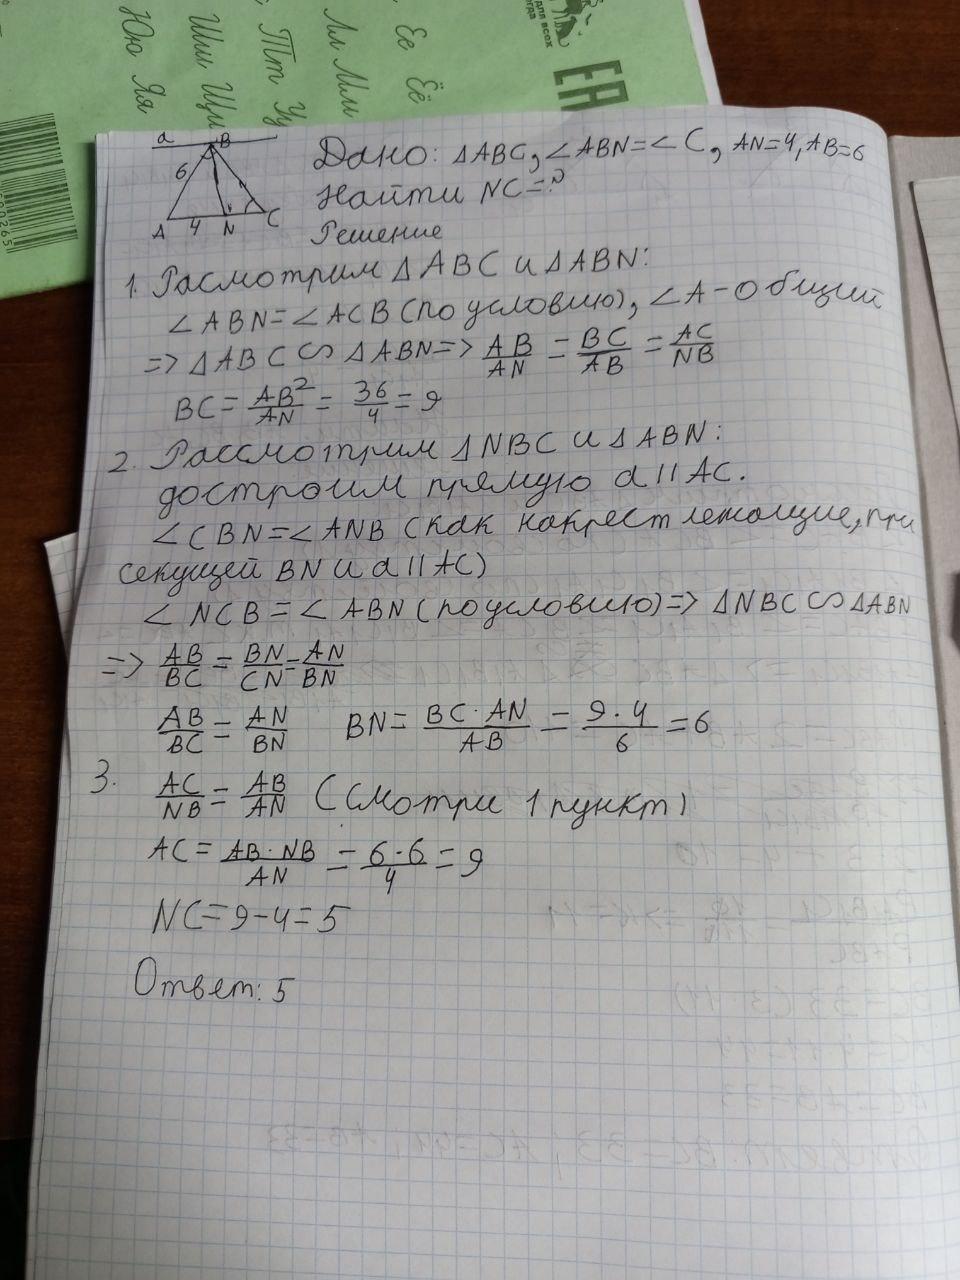 Ее Ёё
Лл Мм
Тт Уу
Шш Щщ
Юю Яя
для всех
ЕАС
a B
6
A 4 N C
Дано: ΔABC, ∠ABN=∠C, AN=4, AB=6
Найти NC=?
Решение
1. Расмотрим ΔABC и ΔABN:
∠ABN=∠ACB (по условию), ∠A-общий
=> ΔABC ∽ ΔABN=> AB/AN = BC/AB = AC/NB
BC= AB²/AN = 36/4 = 9
2. Рассмотрим ΔNBC и ΔABN:
достроим прямую a || AC.
∠CBN=∠ANB (как накрест лежащие, при
секущей BN и a || AC)
∠NCB=∠ABN (по условию)=> ΔNBC ∽ ΔABN
=> AB/BC = BN/CN = AN/BN
AB/BC = AN/BN BN= BC·AN/AB = 9·4/6 = 6
3. AC/NB = AB/AN (смотри 1 пункт)
AC= AB·NB/AN = 6·6/4 = 9
NC=9-4=5
Ответ: 5